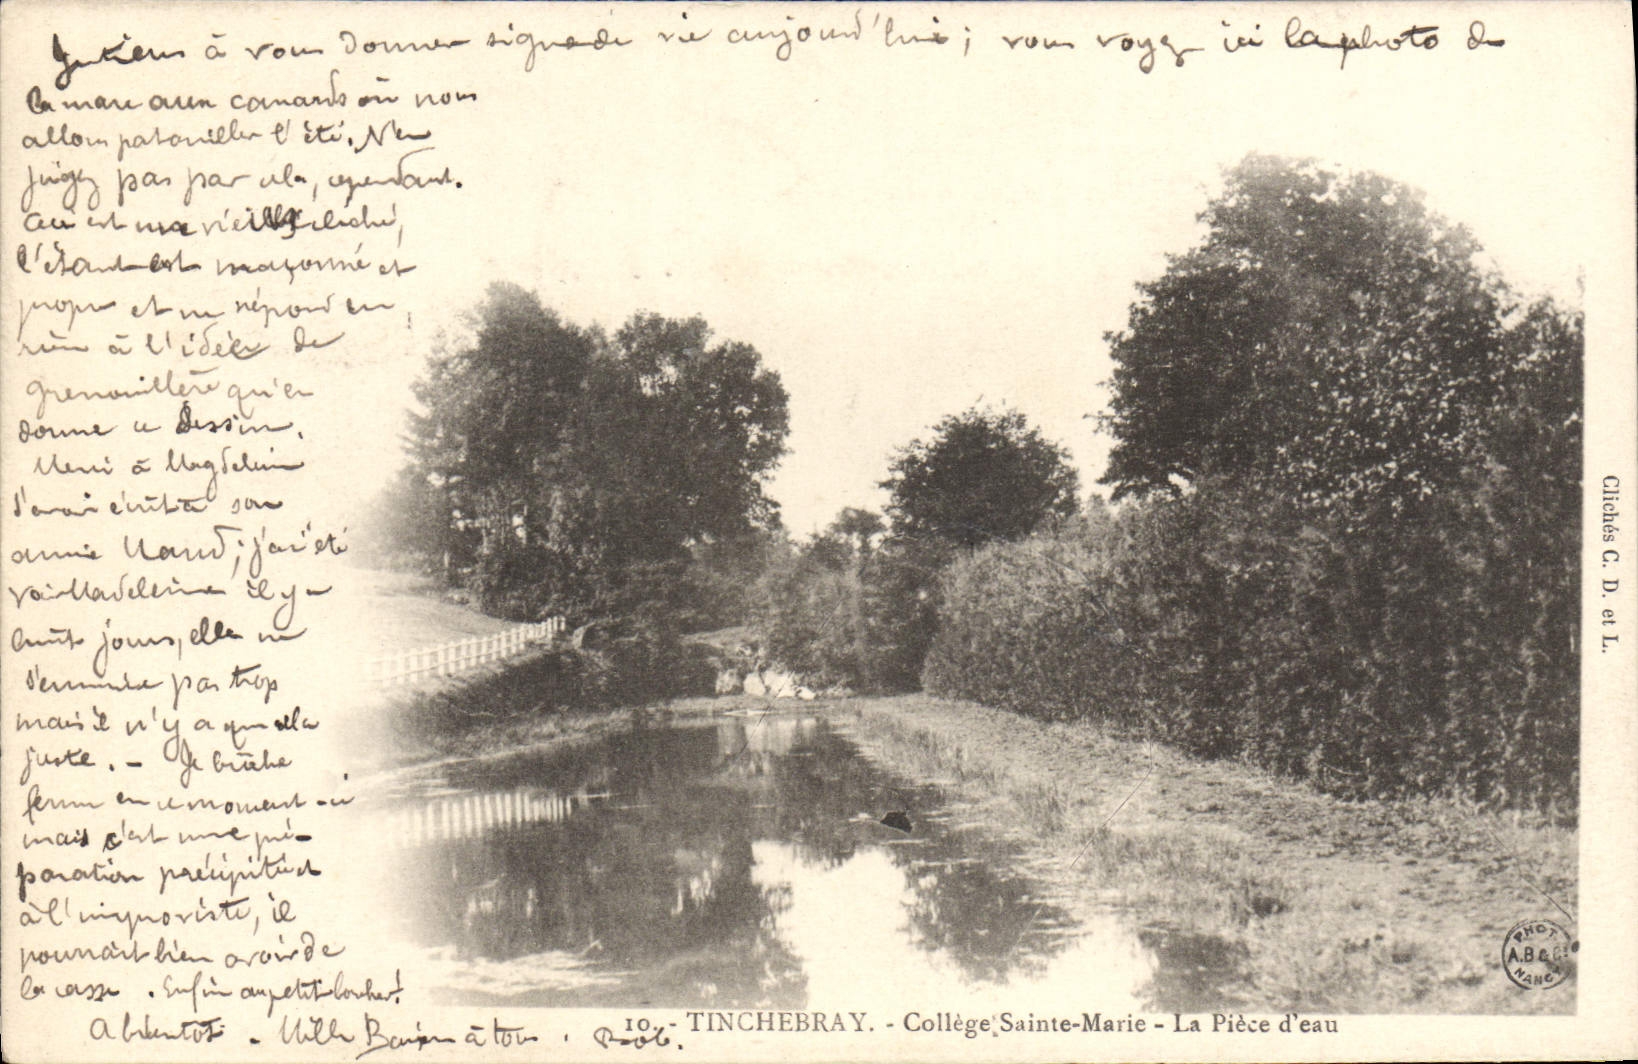 Je tiens à vous donner signe de vie aujourd'hui ; vous voyez ici la photo de
la mare aux canards où nous
allons patouiller l'été. N'en
jugez pas par cela, cependant.
Ceci est un vieux cliché,
l'étant est maçonné et
propre et ne répond en
rien à l'idée de
grenouillère qu'en
donne ce dessin.
Merci à Magdeleine
d'avoir écrit à son
amie Maud ; j'ai été
voir Madeleine il y a
huit jours, elle ne
s'ennuie pas trop
mais il n'y a que cela
juste. - Je bûche
ferme en ce moment-ci
mais c'est une pré-
paration précipitée et
à l'improviste, il
pourrait bien avoir de
la casse. Enfin au petit bonheur !
A bientôt. Mille Baisers à tous. Rob.
10. - TINCHEBRAY. - Collège Sainte-Marie - La Pièce d'eau
Clichés C. D. et L.
PHOT.
A.B & Cie
NANCY